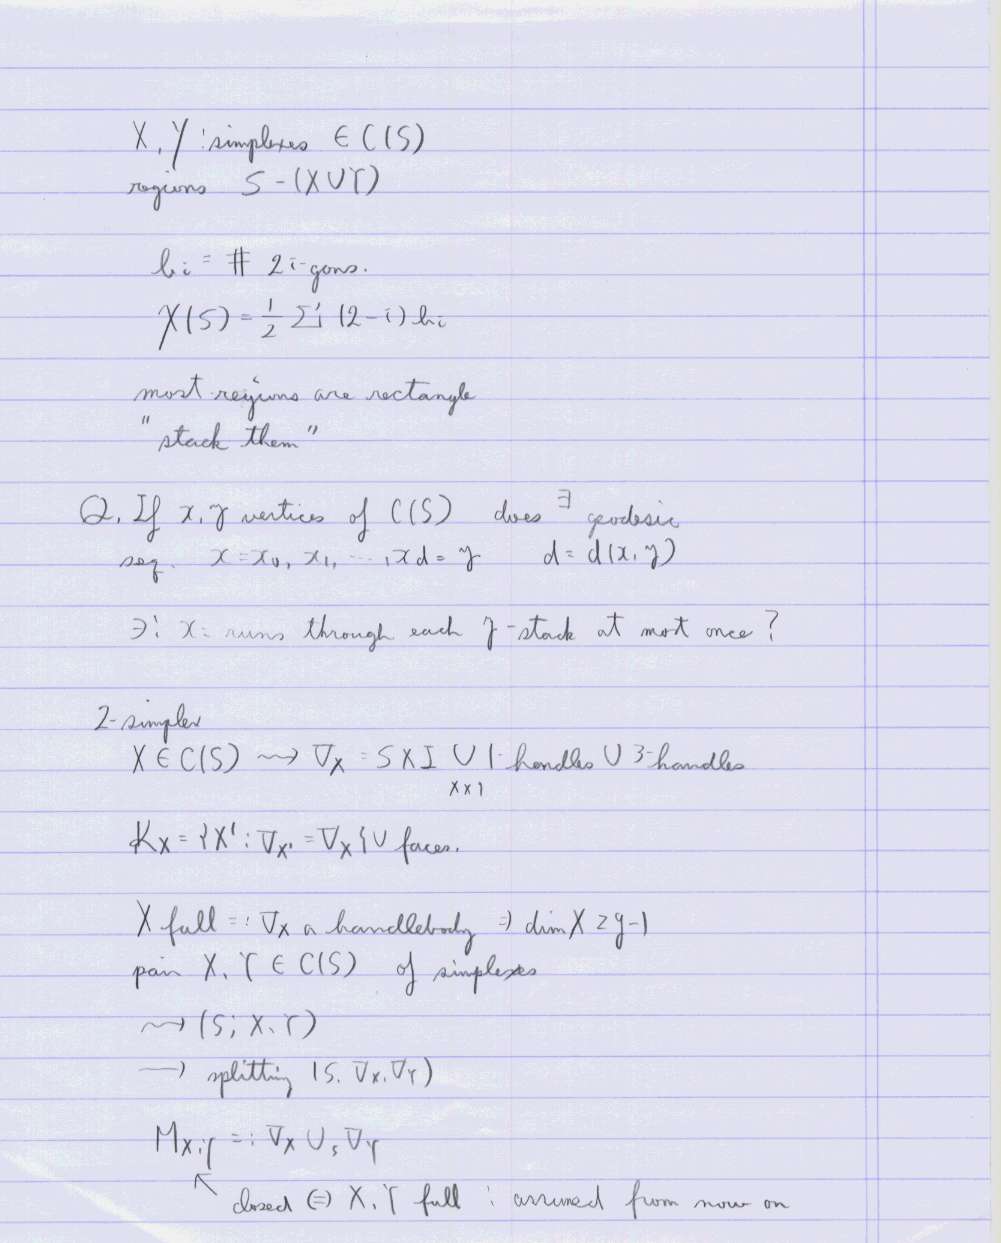 X, Y : simplexes ∈ C(S)
regions S - (X∪Y)
bi = # 2i-gons.
χ(S) = 1/2 Σ (2-i) bi
most regions are rectangle
"stack them"
Q. If x, y vertices of C(S) does ∃ geodesic
seq. x = x0, x1, ..., xd = y d = d(x, y)
∋: xi runs through each y-stack at most once ?
2-simplex
X ∈ C(S) ⇝ ∇X = S×I ∪ 1-handles ∪ 3-handles
X×1
KX = {X' : ∇X' = ∇X} ∪ faces.
X full =: ∇X a handlebody ⇒ dim X ≥ g-1
pair X, Y ∈ C(S) of simplexes
⇝ (S; X, Y)
⟶ splitting (S, ∇X, ∇Y)
MX,Y =: ∇X ∪s ∇Y
↖ closed ⇔ X, Y full : assumed from now on